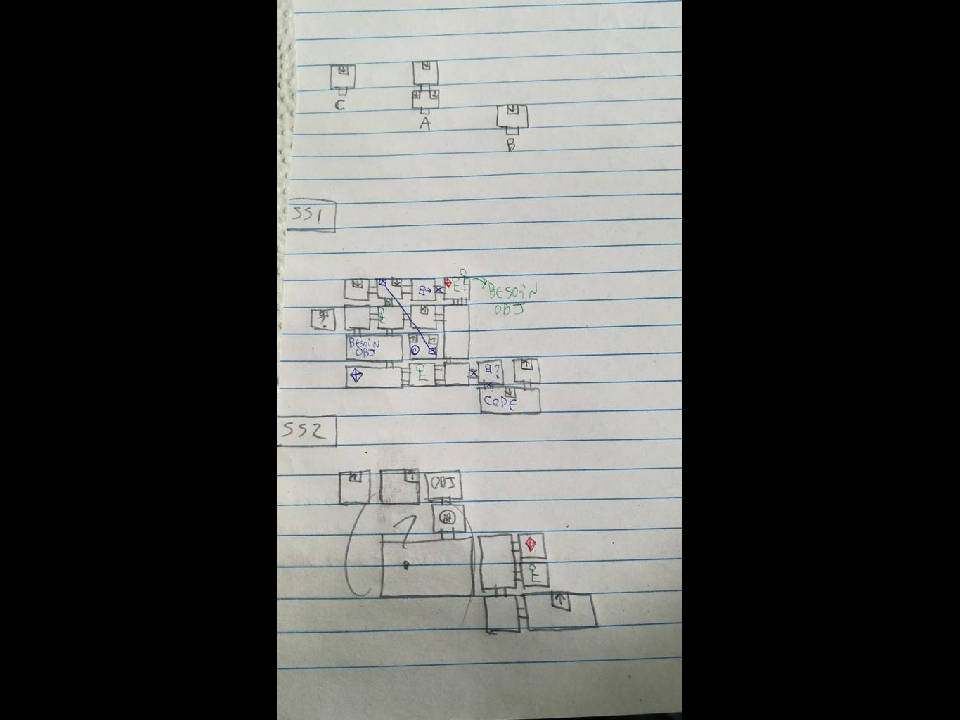 C
A
B
SS1
E?
BESOIN
OBJ
?
BESOIN
OBJ
?
CODE
SS2
OBJ
?